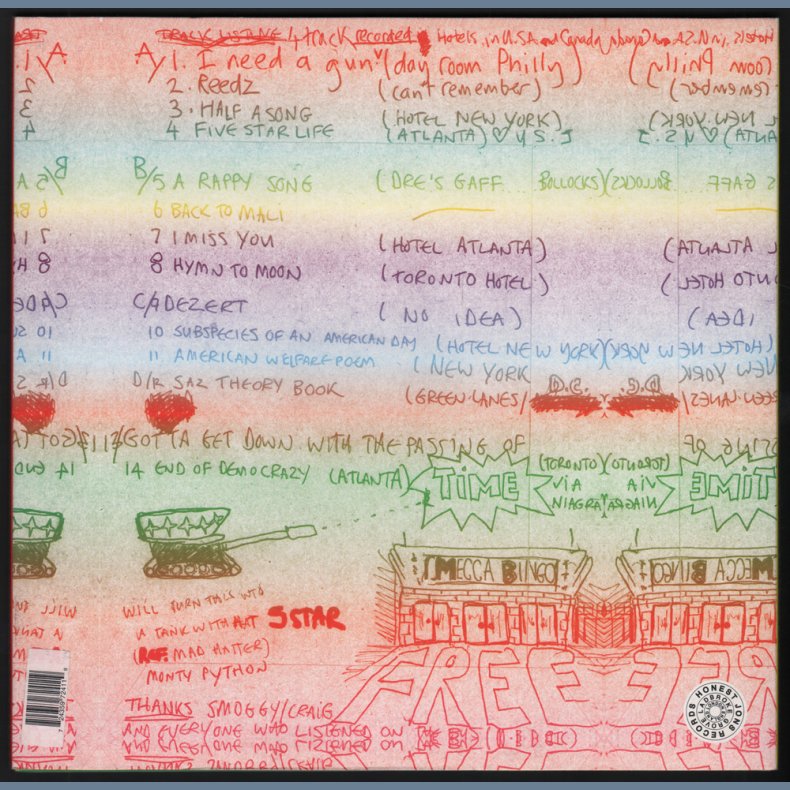 TRACK LISTING 4 track recorded Hotels in U.SA and Canada
A/1. I need a gun (day room Philly)
2. Reedz (can't remember)
3. HALF A SONG (HOTEL NEW YORK)
4 FIVE STAR LIFE (ATLANTA) U.S.
B/5 A RAPPY SONG (DRE'S GAFF BOLLOCKS)
6 BACK TO MALI
7 I MISS YOU (HOTEL ATLANTA)
8 HYMN TO MOON (TORONTO HOTEL)
C/9 DEZERT (NO IDEA)
10 SUBSPECIES OF AN AMERICAN DAY (HOTEL NEW YORK)
11 AMERICAN WELFARE POEM (NEW YORK
D/12 SAZ THEORY BOOK (GREEN LANES/
GOTTA GET DOWN WITH THE PASSING OF
TIME
14 END OF DEMOCRAZY (ATLANTA)
(TORONTO)
VIA
NIAGRA
MECCA BINGO
WILL TURN THIS INTO
A TANK WITH HAT 5 STAR
(REF. MAD HATTER)
MONTY PYTHON
FREE
THANKS SMOGGY/CRAIG
AND EVERYONE WHO LISTENED ON
HONEST JONS RECORDS
LADBROKE GROVE